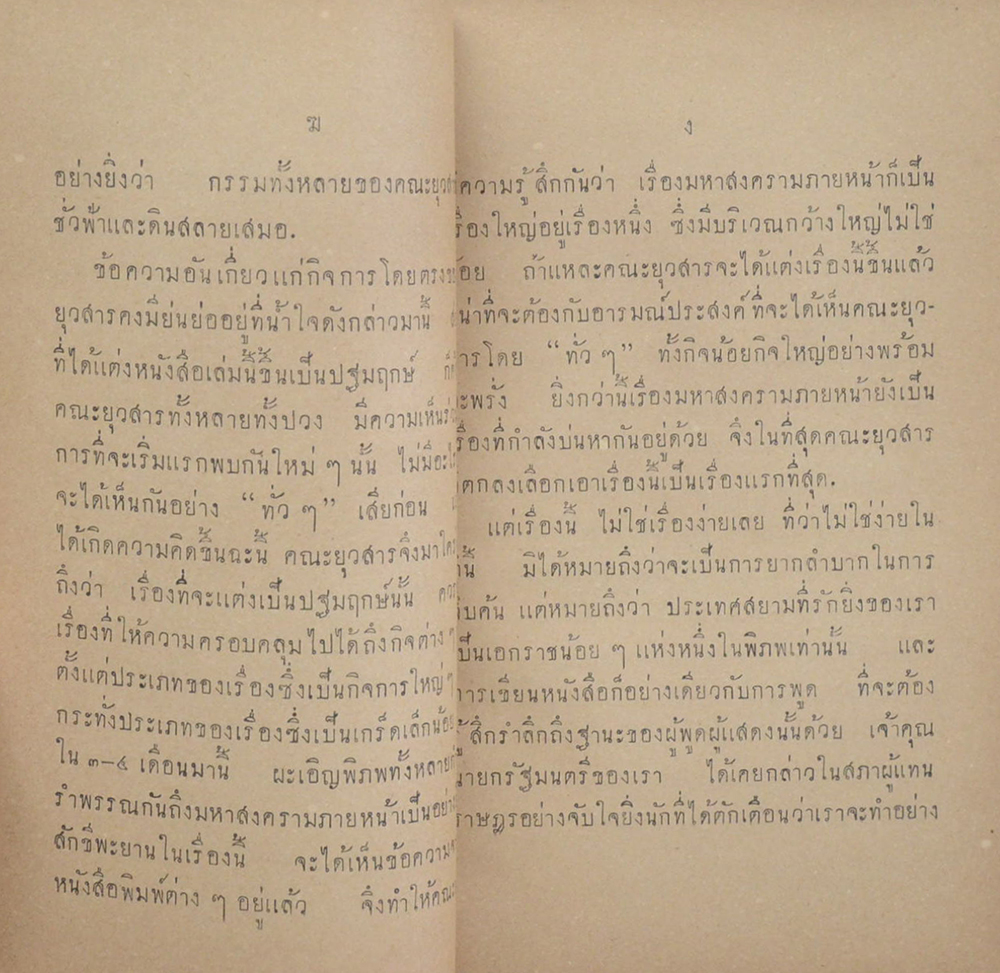 ฆ
อย่างยิ่งว่า กรรมทั้งหลายของคณะยุวสา
ชั่วฟ้าและดินสลายเสมอ.
ข้อความอันเกี่ยวแก่กิจการโดยตรง
ยุวสารคงมีย่นย่ออยู่ที่น้ำใจดังกล่าวมานี้
ที่ได้แต่งหนังสือเล่มนี้ขึ้นเป็นปฐมฤกษ์
คณะยุวสารทั้งหลายทั้งปวง มีความเห็น
การที่จะเริ่มแรกพบกันใหม่ ๆ นั้น ไม่มีอะไ
จะได้เห็นกันอย่าง “ทั่ว ๆ” เสียก่อน
ได้เกิดความคิดขึ้นฉะนี้ คณะยุวสารจึงมา
ถึงว่า เรื่องที่จะแต่งเป็นปฐมฤกษ์นั้น
เรื่องที่ให้ความครอบคลุมไปได้ถึงกิจต่าง ๆ
ตั้งแต่ประเภทของเรื่องซึ่งเป็นกิจการใหญ่ ๆ
กระทั่งประเภทของเรื่องซึ่งเป็นเกร็ดเล็กน้อย
ใน ๓–๔ เดือนมานี้ ผะเอิญพิภพทั้งหลาย
รำพรรณกันถึงมหาสงครามภายหน้าเป็นอย่าง
สักขีพะยานในเรื่องนี้ จะได้เห็นข้อความ
หนังสือพิมพ์ต่าง ๆ อยู่แล้ว จึงทำให้คณะ
ง
ความรู้สึกกันว่า เรื่องมหาสงครามภายหน้าก็เป็น
รื่องใหญ่อยู่เรื่องหนึ่ง ซึ่งมีบริเวณกว้างใหญ่ไม่ใช่
น้อย ถ้าแหละคณะยุวสารจะได้แต่งเรื่องนี้ขึ้นแล้ว
น่าที่จะต้องกับอารมณ์ประสงค์ที่จะได้เห็นคณะยุว-
ารโดย “ทั่ว ๆ” ทั้งกิจน้อยกิจใหญ่อย่างพร้อม
ะพรั่ง ยิ่งกว่านี้เรื่องมหาสงครามภายหน้ายังเป็น
รื่องที่กำลังบ่นหากันอยู่ด้วย จึงในที่สุดคณะยุวสาร
ตกลงเลือกเอาเรื่องนี้เป็นเรื่องแรกที่สุด.
แต่เรื่องนี้ ไม่ใช่เรื่องง่ายเลย ที่ว่าไม่ใช่ง่ายใน
นี้ มิได้หมายถึงว่าจะเป็นการยากลำบากในการ
สืบค้น แต่หมายถึงว่า ประเทศสยามที่รักยิ่งของเรา
เป็นเอกราชน้อย ๆ แห่งหนึ่งในพิภพเท่านั้น และ
การเขียนหนังสือก็อย่างเดียวกับการพูด ที่จะต้อง
รู้สึกรำลึกถึงฐานะของผู้พูดผู้แสดงนั้นด้วย เจ้าคุณ
นายกรัฐมนตรีของเรา ได้เคยกล่าวในสภาผู้แทน
ราษฎรอย่างจับใจยิ่งนักที่ได้ตักเตือนว่าเราจะทำอย่าง